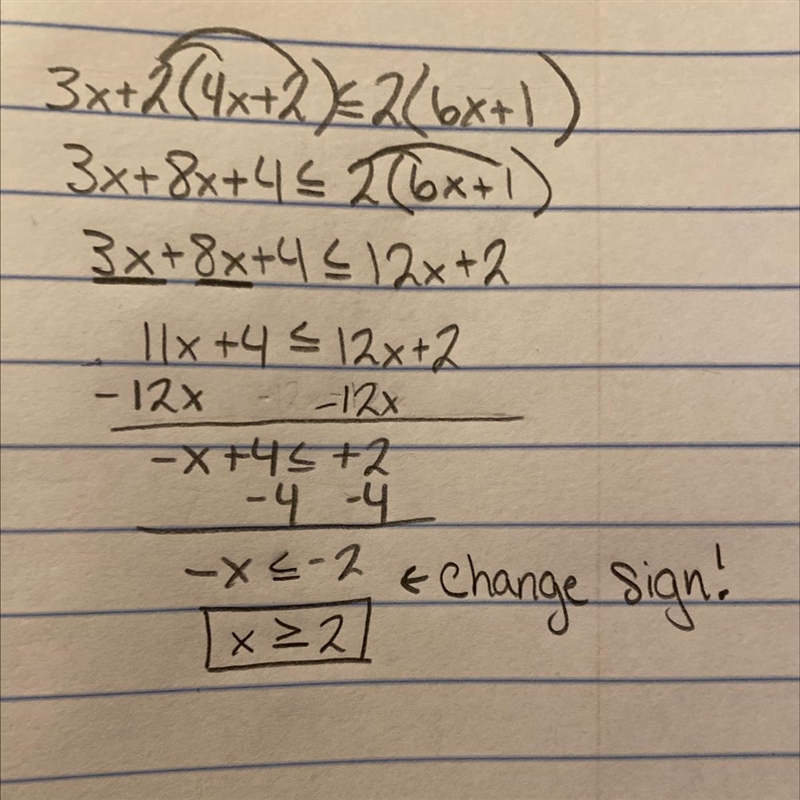 3x+2(4x+2)≤2(6x+1)
3x+8x+4≤ 2(6x+1)
3x+8x+4≤12x+2
11x+4 ≤ 12x+2
-12x -12x
-x+4≤ +2
-4 -4
-x≤-2 ← Change Sign!
x≥2